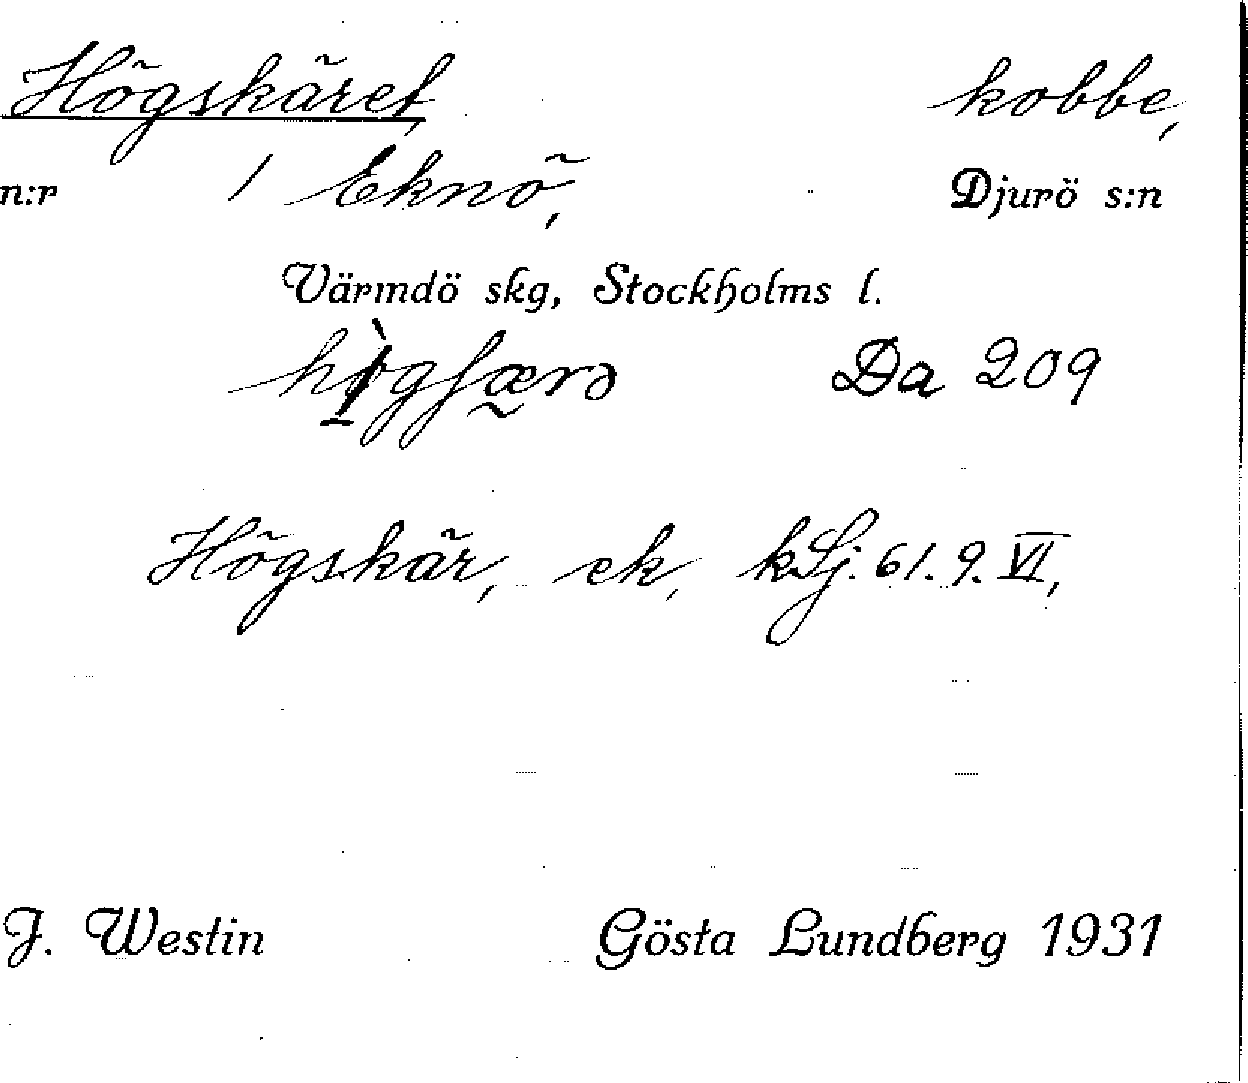 Högskäret, kobbe,
n:r 1 Eknö, Djurö s:n
Värmdö skg, Stockholms l.
Da 209
Högskär, ek, kSj. 61. 9. VI,
J. Westin Gösta Lundberg 1931